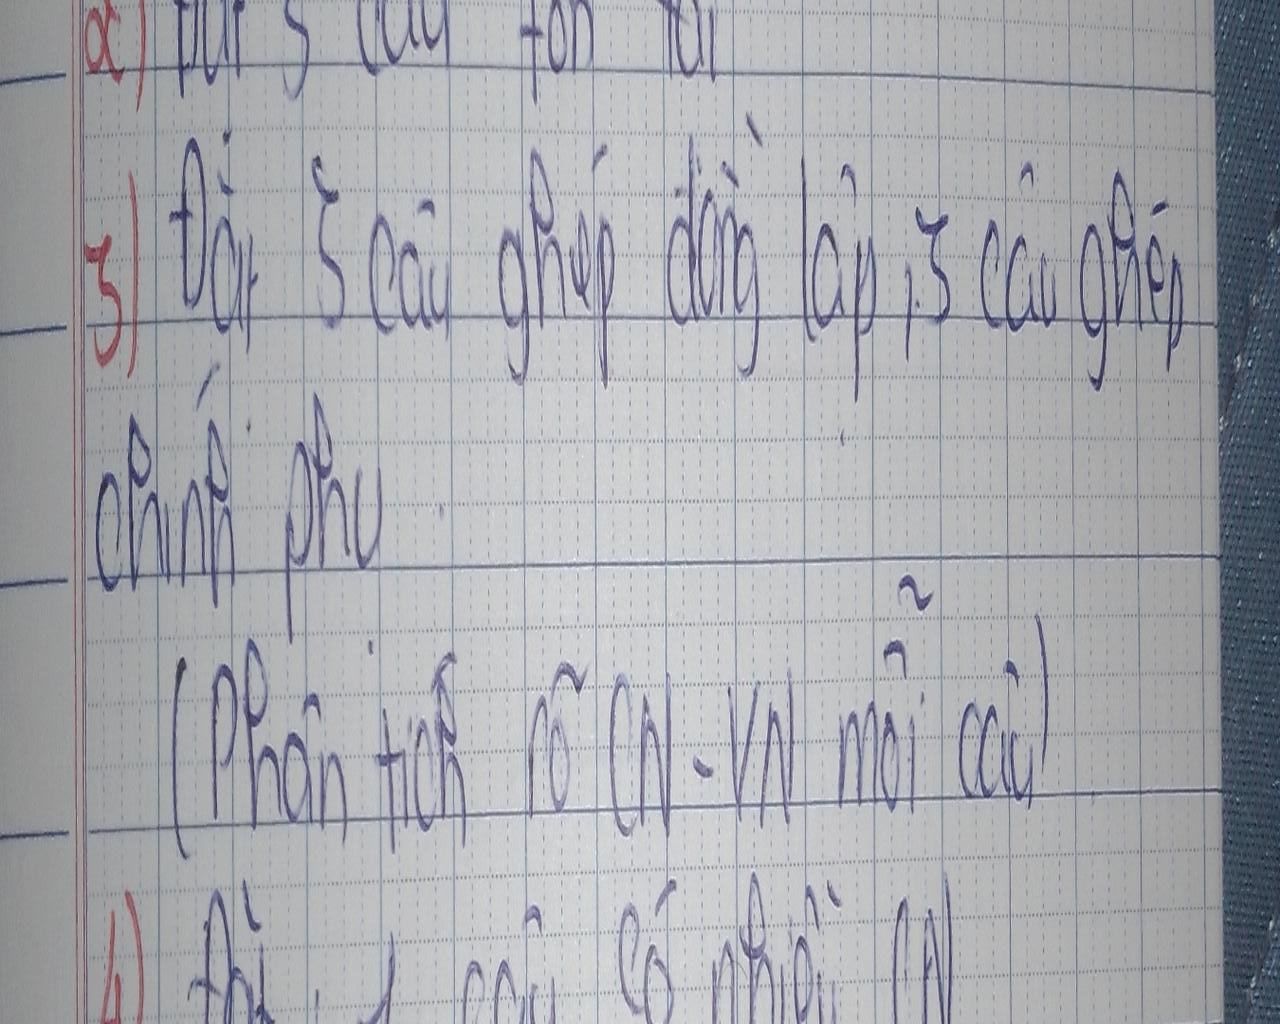 2) Đặt 3 câu tồn tại
3) Đặt 3 câu ghép đẳng lập, 3 câu ghép
chính phụ.
(Phân tích rõ CN - VN mỗi câu)
4) Đặt 1 câu có nhiều CN